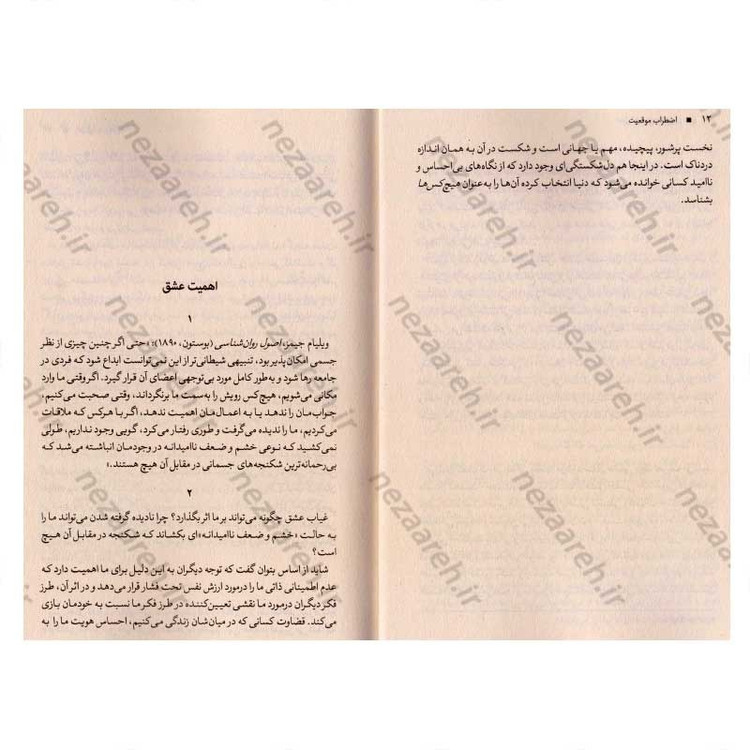 ۱۲ ■ اضطراب موقعیت
نخست پرشور، پیچیده، مهم یا جهانی است و شکست در آن به همان اندازه
دردناک است. در اینجا هم دل‌شکستگی‌ای وجود دارد که از نگاه‌های بی‌احساس و
ناامید کسانی خوانده می‌شود که دنیا انتخاب کرده آن‌ها را به‌عنوان هیچ‌کس‌ها
بشناسد.
اهمیت عشق
۱
ویلیام جیمز، اصول روان‌شناسی (بوستون، ۱۸۹۰): «حتی اگر چنین چیزی از نظر
جسمی امکان‌پذیر بود، تنبیهی شیطانی‌تر از این نمی‌توانست ابداع شود که فردی در
جامعه رها شود و به‌طور کامل مورد بی‌توجهی اعضای آن قرار گیرد. اگر وقتی ما وارد
مکانی می‌شویم، هیچ‌کس رویش را به‌سمت ما برنگرداند، وقتی صحبت می‌کنیم،
جواب‌مان را ندهد یا به اعمال‌مان اهمیت ندهد، اگر با هرکس که ملاقات
می‌کردیم، ما را ندیده می‌گرفت و طوری رفتار می‌کرد، گویی وجود نداریم، طولی
نمی‌کشید که نوعی خشم و ضعف ناامیدانه در وجودمان انباشته می‌شد که
بی‌رحمانه‌ترین شکنجه‌های جسمانی در مقابل آن هیچ هستند.»
۲
غیاب عشق چگونه می‌تواند بر ما اثر بگذارد؟ چرا نادیده گرفته شدن می‌تواند ما را
به حالت «خشم و ضعف ناامیدانه»ای بکشاند که شکنجه در مقابل آن هیچ
است؟
شاید از اساس بتوان گفت که توجه دیگران به این دلیل برای ما اهمیت دارد که
عدم اطمینانی ذاتی ما را درمورد ارزش نفس تحت فشار قرار می‌دهد و در اثر آن، طرز
فکر دیگران درمورد ما نقشی تعیین‌کننده در طرز فکر ما نسبت به خودمان بازی
می‌کند. قضاوت کسانی که در میان‌شان زندگی می‌کنیم، احساس هویت ما را به
nezaareh.ir